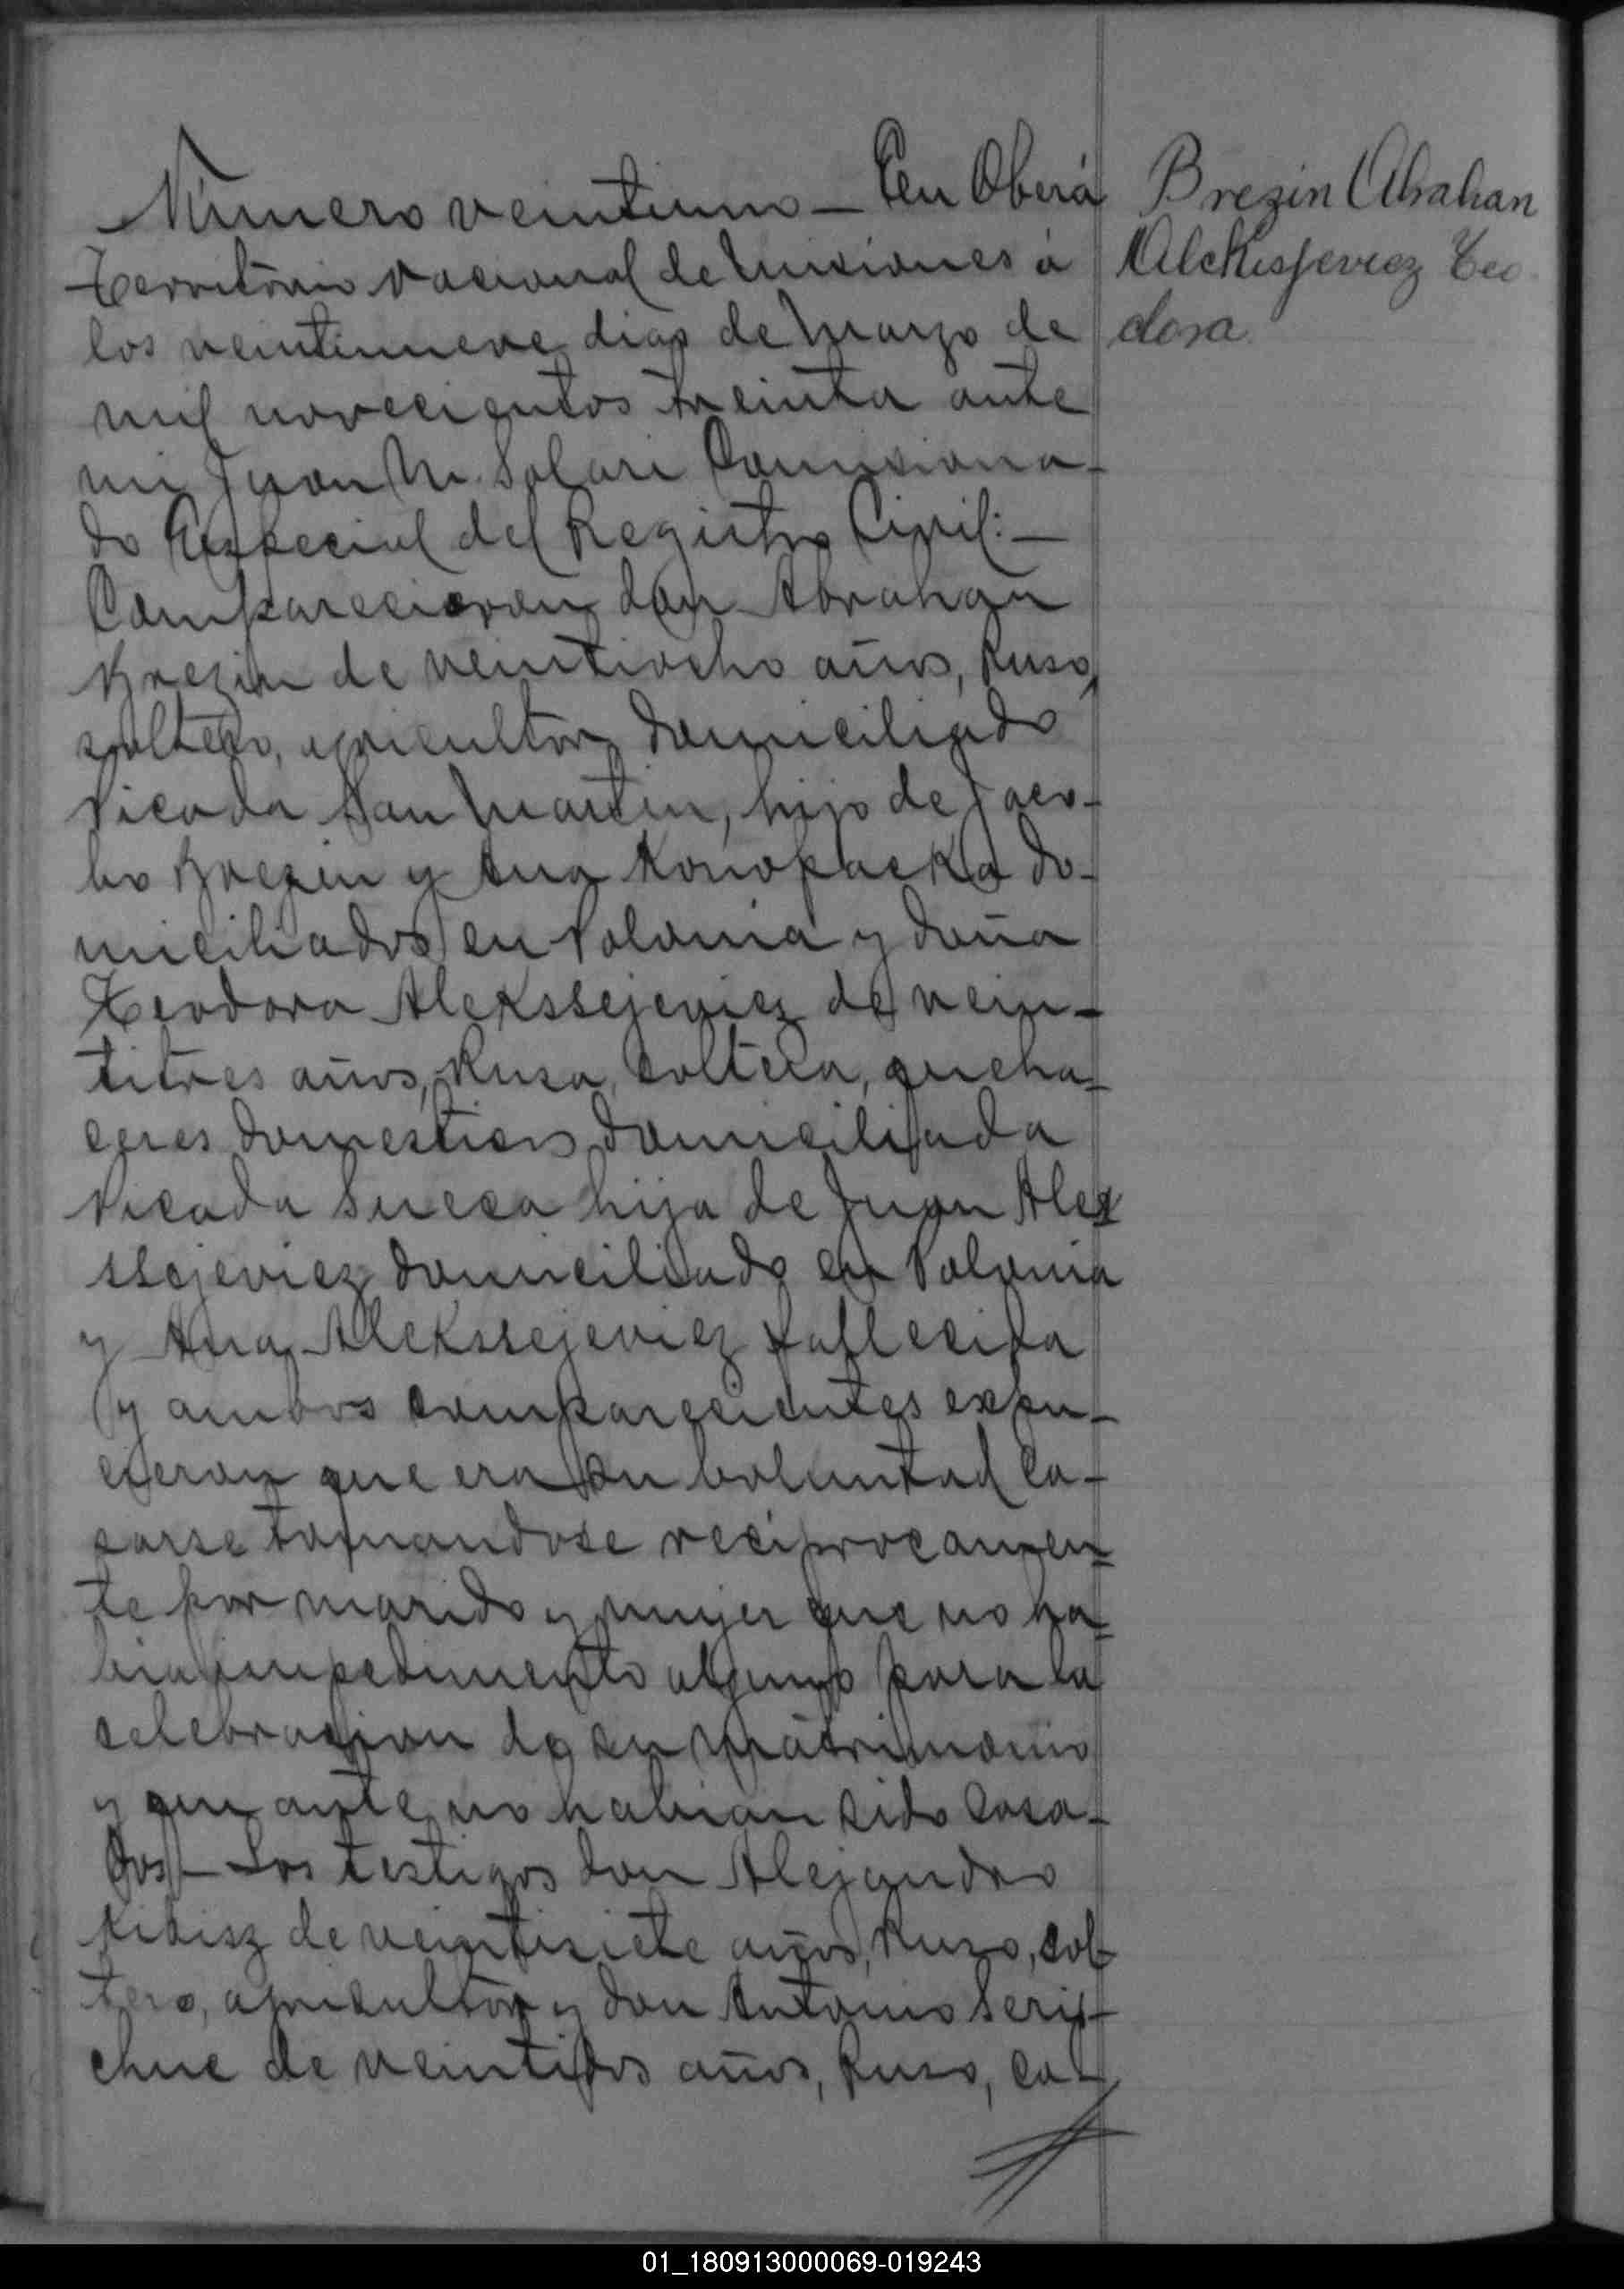 Número veintiuno — En Oberá
Territorio Nacional de Misiones á
los veintinueve dias de Marzo de
mil novecientos treinta ante
mi Juan M. Solari Comisiona-
do Especial del Registro Civil: —
Comparecieron don Abrahan
Brezin de veintiocho años, Ruso,
soltero, agricultor, domiciliado
Picada San Martin, hijo de Jaco-
bo Brezin y Ana Konopacka do-
miciliados en Polonia y doña
Teodora Alekssejeviez de vein-
titres años, Rusa, soltera, queha-
ceres domesticos, domiciliada
Picada Sueca hija de Juan Alek
ssejeviez domiciliado en Polonia
y Ana Alekssejeviez fallecida
y ambos comparecientes expu-
cieron que era su boluntad ca-
sarse tomandose reciprocamen-
te por marido y mujer que no ha-
bia impedimento alguno para la
celebracion de su matrimonio
y que ante no habian sido casa-
dos — Los testigos don Alejandro
de veintisiete años, Ruso, sol-
tero, agricultor y don Antonio
de veintidos años, Ruso, ca-
Brezin Abrahan
Alekssjeviez Teo
dora
01_180913000069-019243